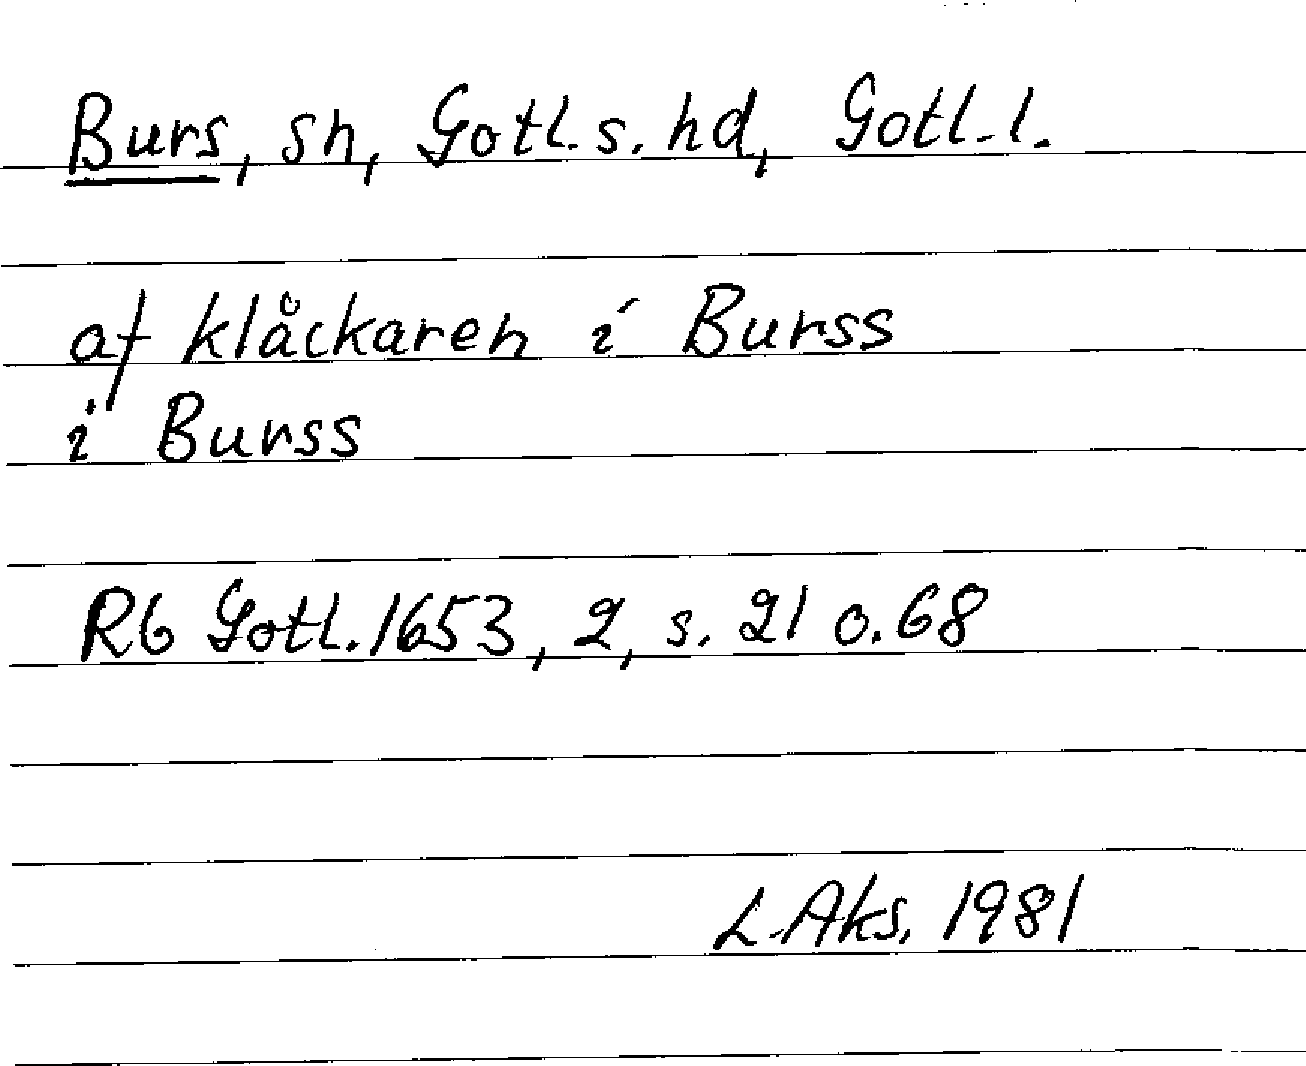 Burs, sn, Gotl. s. hd, Gotl. l.
af klåckaren i Burss
i Burss
Rb Gotl. 1653, 2, s. 21 o. 68
L. Aks. 1981